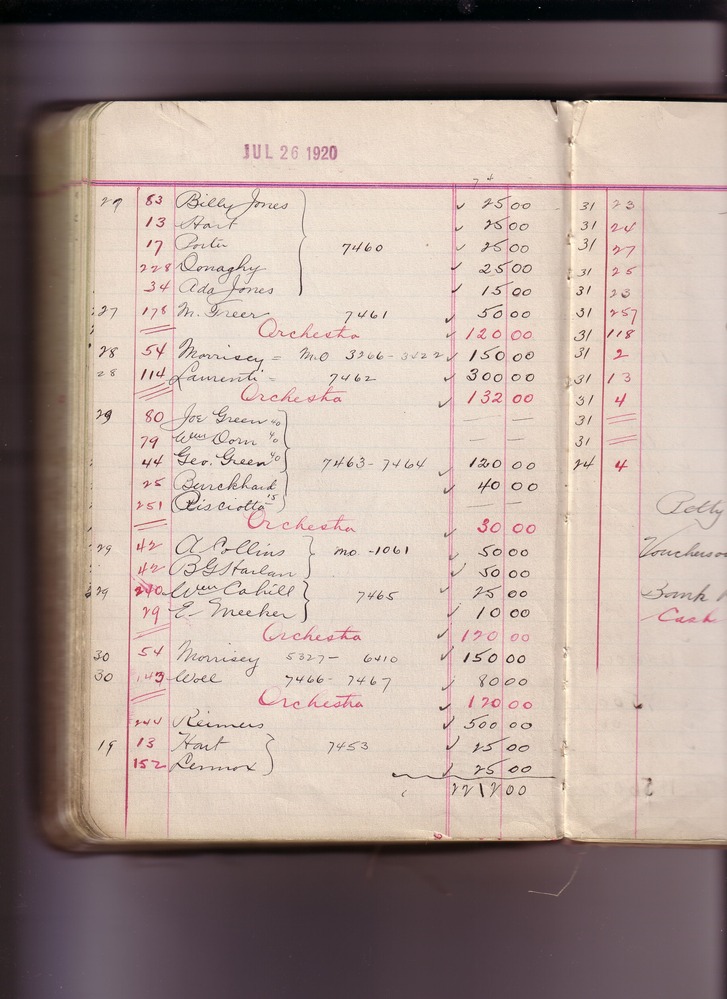 JUL 26 1920
27 83 Billy Jones ✓ 25 00
13 Hart ✓ 25 00
17 Porter 7460 ✓ 25 00
228 Donaghy ✓ 25 00
34 Ada Jones ✓ 15 00
27 178 M. Greer 7461 ✓ 50 00
Orchestra ✓ 120 00
28 54 Morrisey = M.O 3266 - 3422 ✓ 150 00
28 114 Laurenti = 7462 ✓ 300 00
Orchestra ✓ 132 00
29 80 Joe Green 40 — —
79 Wm Dorn 40 — —
44 Geo. Green 40 7463-7464 ✓ 120 00
25 Burckhard ✓ 40 00
251 Pisciotta 15 — —
Orchestra ✓ 30 00
29 42 A Collins mo -1061 ✓ 50 00
42 BG Harlan ✓ 50 00
29 Wm Cahill 7465 ✓ 25 00
29 E. Meeker ✓ 10 00
Orchestra 120 00
30 54 Morrisey 5327- 6410 ✓ 150 00
30 143 Woll 7466- 7467 ✓ 80 00
Orchestra ✓ 120 00
244 Reimers ✓ 500 00
19 13 Hart 7453 ✓ 25 00
152 Lennox ✓ 25 00
2212 00
31 23
31 24
31 27
31 25
31 23
31 257
31 118
31 2
31 13
31 4
31
31
24 4
Petty
Vouchers
Bank
Cash